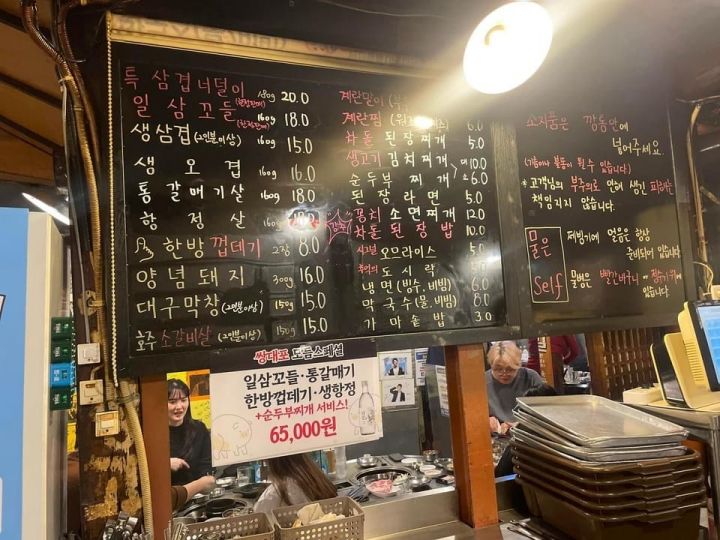 특 삼겹 너덜이 180g 20.0
일 삼 꼬 들 (한정판매) 160g 18.0
생삼겹 (2인분이상) 160g 15.0
생 오 겹 160g 16.0
통 갈매기살 160g 18.0
항 정 살 160g
한방 껍데기 2장 8.0
양념돼지 300g 16.0
대구막창 (2인분이상) 150g 15.0
호주 소갈비살 (2인분이상) 150g 15.0
계란말이
계란찜 6.0
차돌 된장찌개 5.0
생고기 김치찌개 大 10.0
순두부 찌개 小 6.0
된장라면 5.0
꽁치 소면찌개 12.0
차돌 된장밥 10.0
시그널 오므라이스 5.0
추억의 도시락 5.0
냉면 (물, 비빔) 6.0
막국수 (물, 비빔) 8.0
가마솥밥 3.0
소지품은 깡통안에
넣어주세요.
(기름이나 불똥이 튈 수 있습니다)
* 고객님의 부주의로 인해 생긴 피해는
책임지지 않습니다.
물은
Self
제빙기에 얼음은 항상
준비되어 있습니다
물병은 빨간바구니
있습니다.
쌍대포 모듬스페셜
일삼꼬들·통갈매기
한방껍데기·생항정
+순두부찌개 서비스!
65,000원